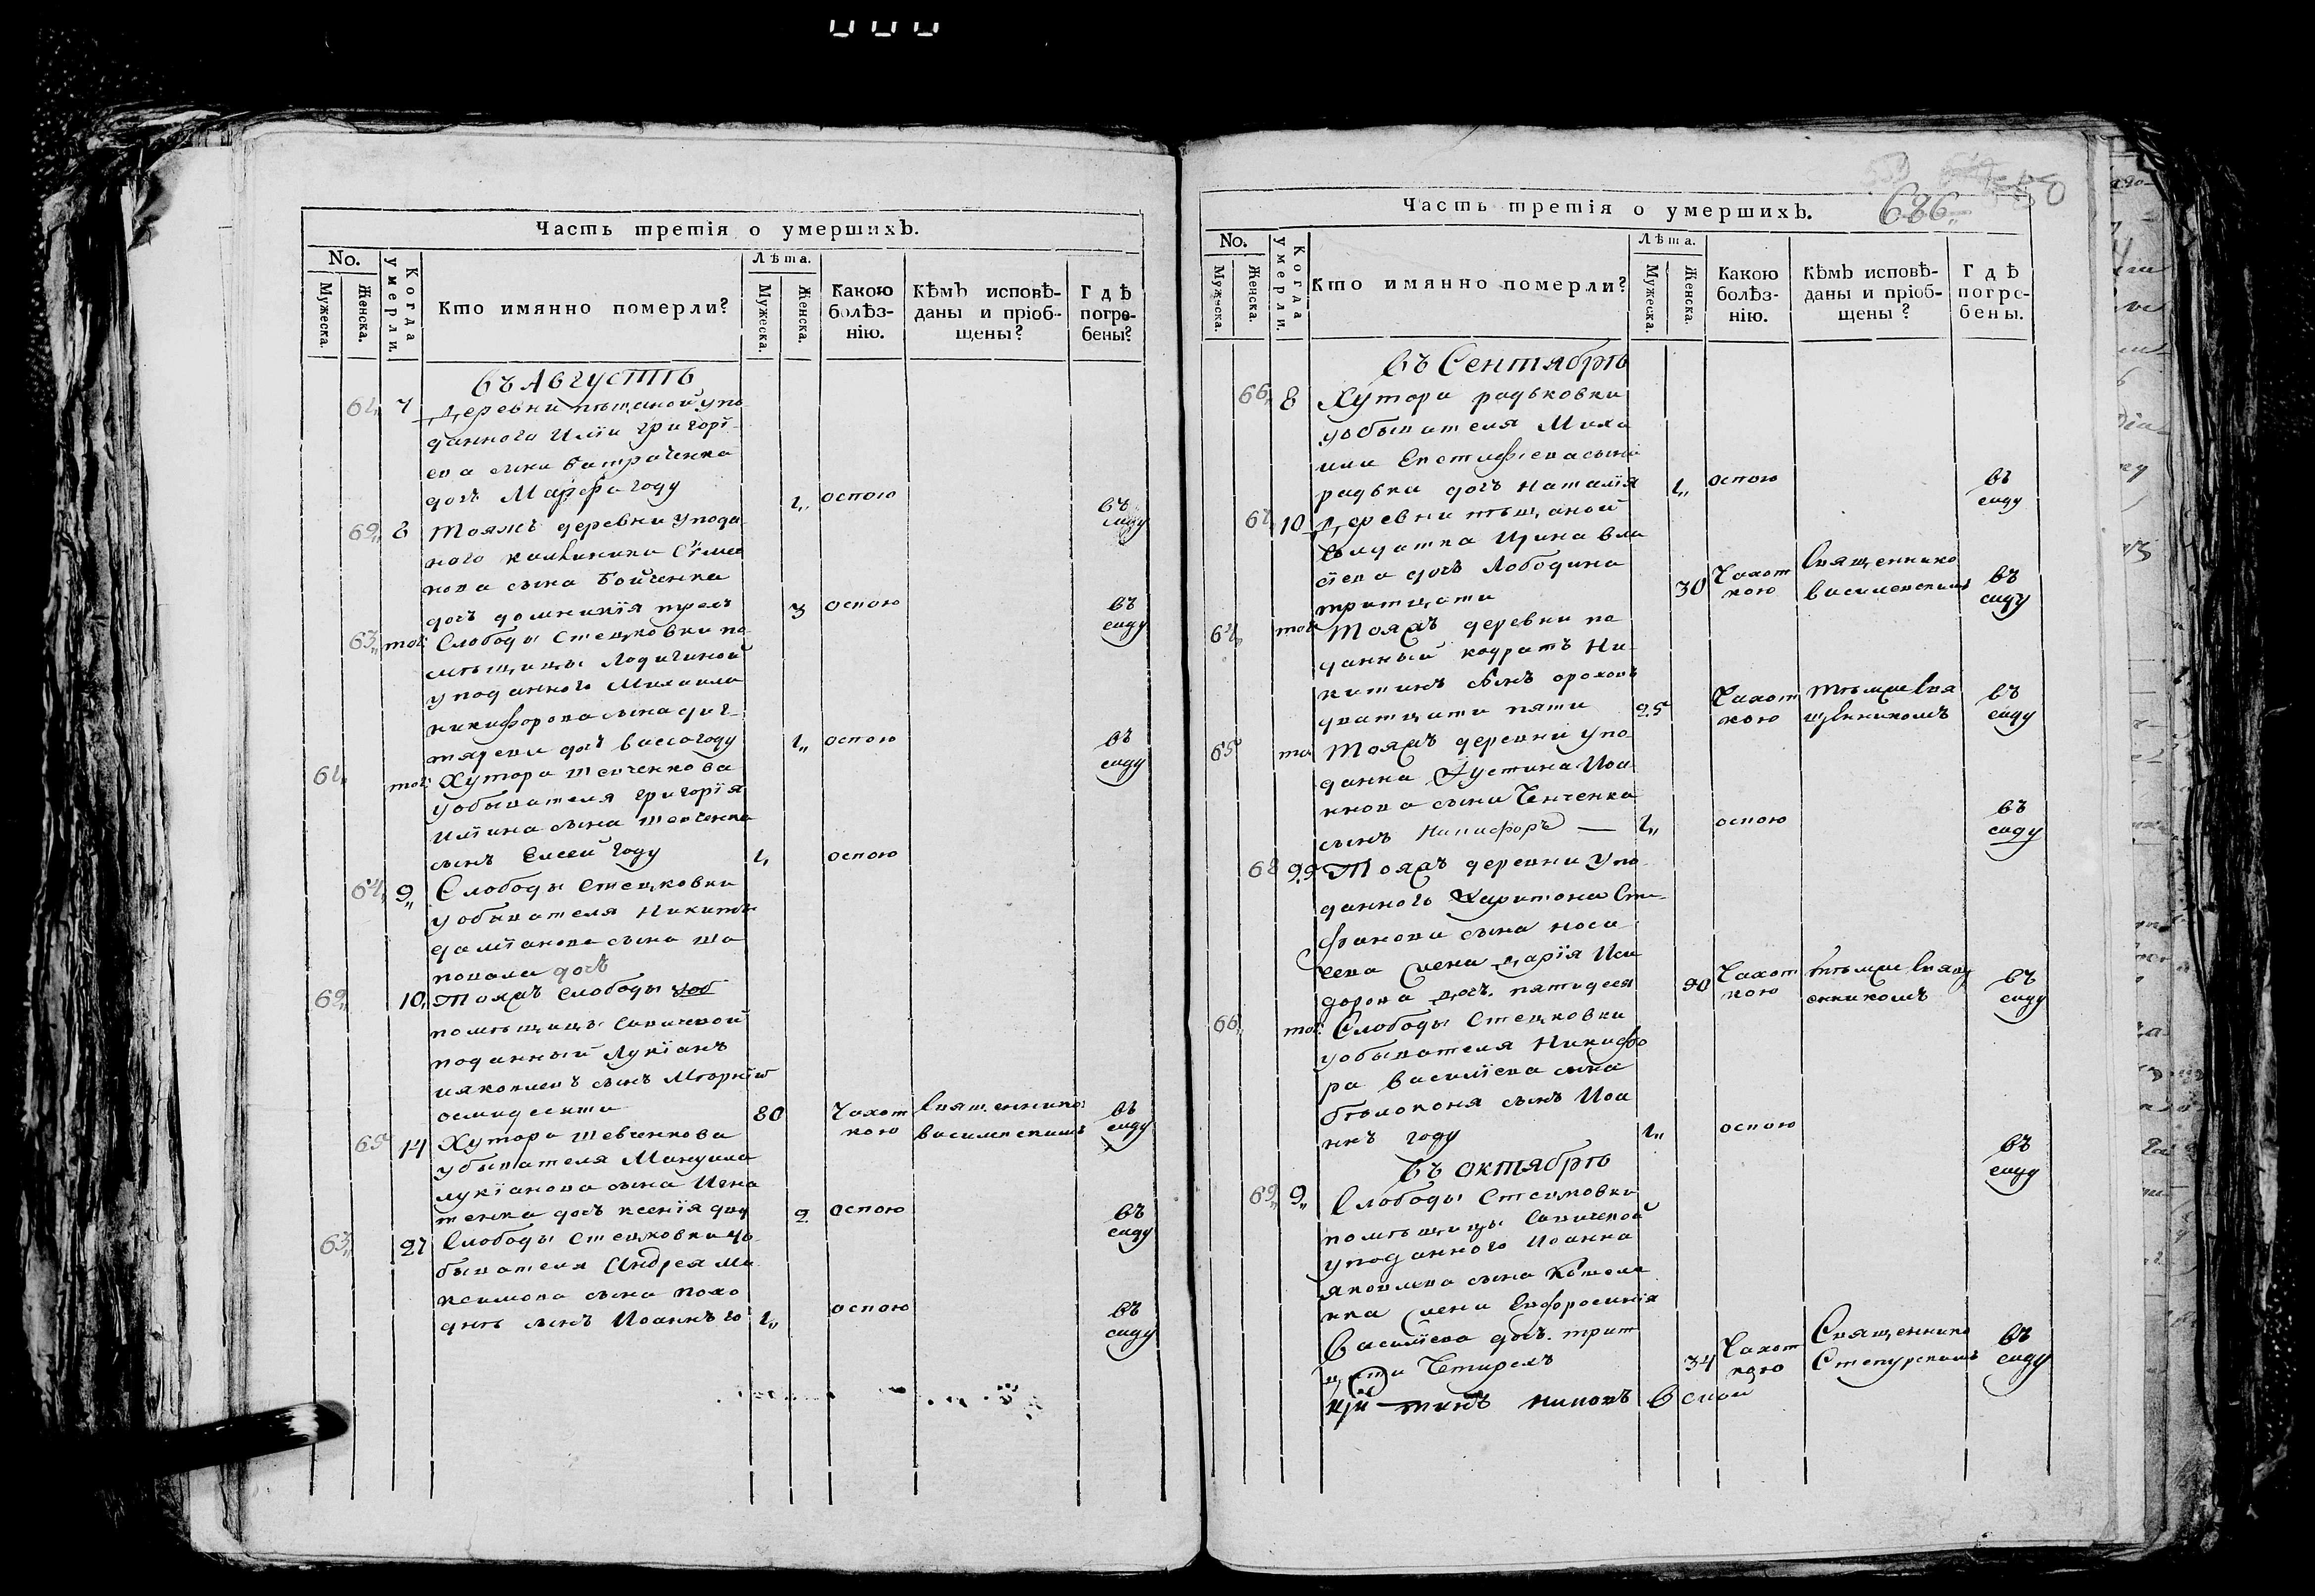 Часть третія о умершихъ.
No.
Мужеска.
Женска.
Когда умерли.
Кто имянно померли?
Лѣта.
Мужеска.
Женска.
Какою болѣз-
нію.
Кѣмъ исповѣ-
даны и пріоб-
щены?
Гдѣ
погре-
бены?
въ Августѣ
7 Деревни пѣщаной упо
данного Иліи григорі
ева сина батраченка
дочь Марфа году 1,, оспою въ
саду
8 Тояжъ деревни упода
ного калиника Симео
нова сына бойченка
дочь домникія трехъ 3 оспою въ
саду
63,, той Слободы Стецковки по
мѣщици Лодигиной
уподанного Михаила
никифорова сына дег
тярева дочь васса году 1,, оспою въ
саду
61,, той Хутора шевченкова
уобывателя григорія
иліина сына шевченка
сынъ Елсей году 1, оспою
64, 9,, Слободы Стецковки
уобывателя Никиты
даміанова сына ша
повала дочь
10, Тояжъ слободы
помѣщицы Савичевой
поданный Лукіанъ
иаковлевъ сынъ
осмидесяти 80 Чахот Священнико въ
кою василевскимъ саду
65 14 Хутора шевченкова
убывателя Мануила
лукіанова сына Игна
тенка дочь ксенія дву 2 оспою въ
саду
63,, 27 Слободы Стецковки уо
бывателя Андрея Ма
ксимова сына
сынъ Иоаннъ го 1,, оспою въ
саду
Часть третія о умершихъ. 686
No.
Мужеска.
Женска.
Когда умерли.
Кто имянно померли?
Лѣта.
Мужеска.
Женска.
Какою
болѣз-
нію.
Кѣмъ исповѣ-
даны и пріоб-
щены?
Гдѣ
погре-
бены.
въ Сентябрѣ
66, 8 Хутора радьковки
уобывателя Миха
ила Евстафіева сына
радька дочь наталія 1,, оспою въ
саду
67, 10 Деревни пѣщаной
Солдатка Ирина вла
сіева дочь Лободина
тритцати 30 Чахот Священнико въ
кою василевскимъ саду
64, той Тояжъ деревни по
данный кодратъ Ни
китинъ сынъ ороховъ
дватцати пяти 25 Чахот тѣмже Свя въ
кою щенникомъ саду
65 той Тояжъ деревни упо
данна Густина Иоа
ннова сына Ченченка
сынъ Никифоръ — 1,, оспою въ
саду
68 22 Тояжъ деревни упо
данного Харитона Сте
фанова сына носа
чева жена дарія Иси
дорова дочъ. пятидеся 50 Чахот тѣмже Свящ въ
кою енникомъ саду
66,, той Слободы Стецковки
уобывателя Никифо
ра василіева сына
бѣлоконя сынъ Иоа
ннъ году 1,, оспою
въ
саду
въ октябрѣ
69,, 9,, Слободы Стецковки
помѣщицы Савичевой
уподанного Иоанна
яковлева сына Котеле
вка жена Евфросинія
Василіева дочь. трит Чахот Священнико въ
цати Четирехъ 34 кою Степурскимъ саду